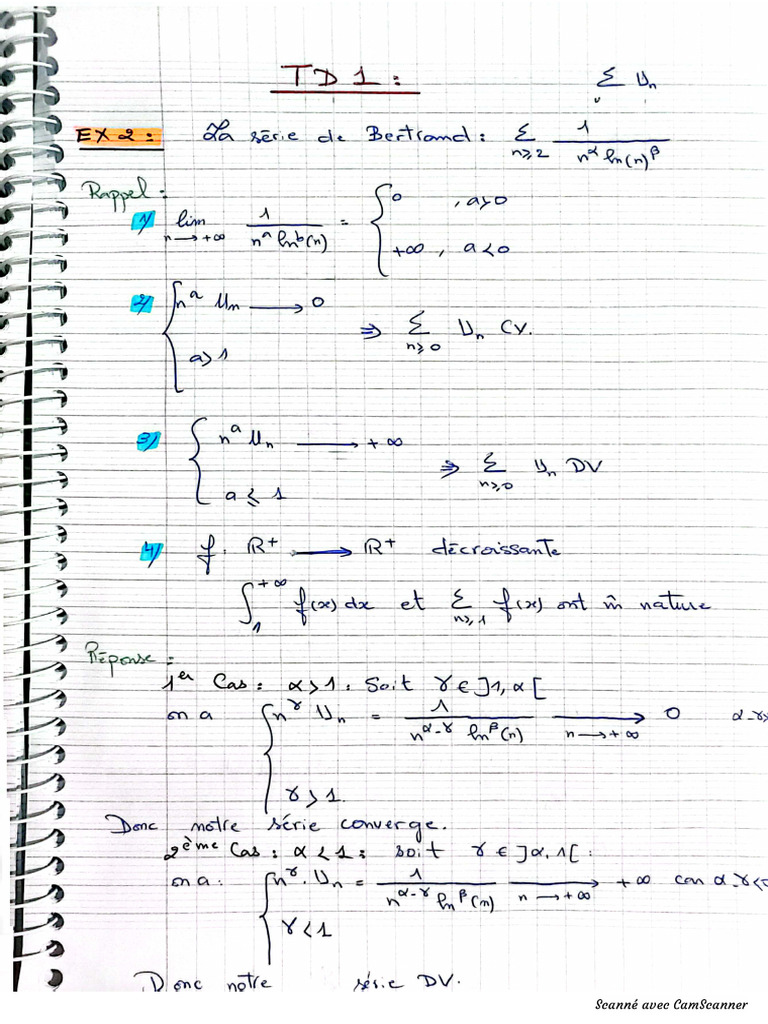 TD1 :
Σ Un
EX 2 : La série de Bertrand : Σ n≥2 1 / n^α ln(n)^β
Rappel :
1) lim n→+∞ 1 / n^a ln^b(n) = { 0 , a>0
+∞ , a<0
2) { n^a Un → 0
a>1
⇒ Σ n≥0 Un CV.
3) { n^a Un → +∞
a ≤ 1
⇒ Σ n≥0 Un DV
4) f : R+ → R+ décroissante
∫ 1 +∞ f(x) dx et Σ n≥1 f(x) ont m̂ nature
Réponse :
1er Cas : α>1 : Soit γ ∈ ]1, α[
on a { n^γ Un = 1 / n^(α-γ) ln^β(n) → n→+∞ 0 α-γ>
γ > 1.
Donc notre série converge.
2ème Cas : α < 1 : soit γ ∈ ]α, 1[ :
on a : { n^γ . Un = 1 / n^(α-γ) ln^β(n) → n→+∞ +∞ can α-γ<0
γ < 1
Donc notre série DV.
Scanné avec CamScanner